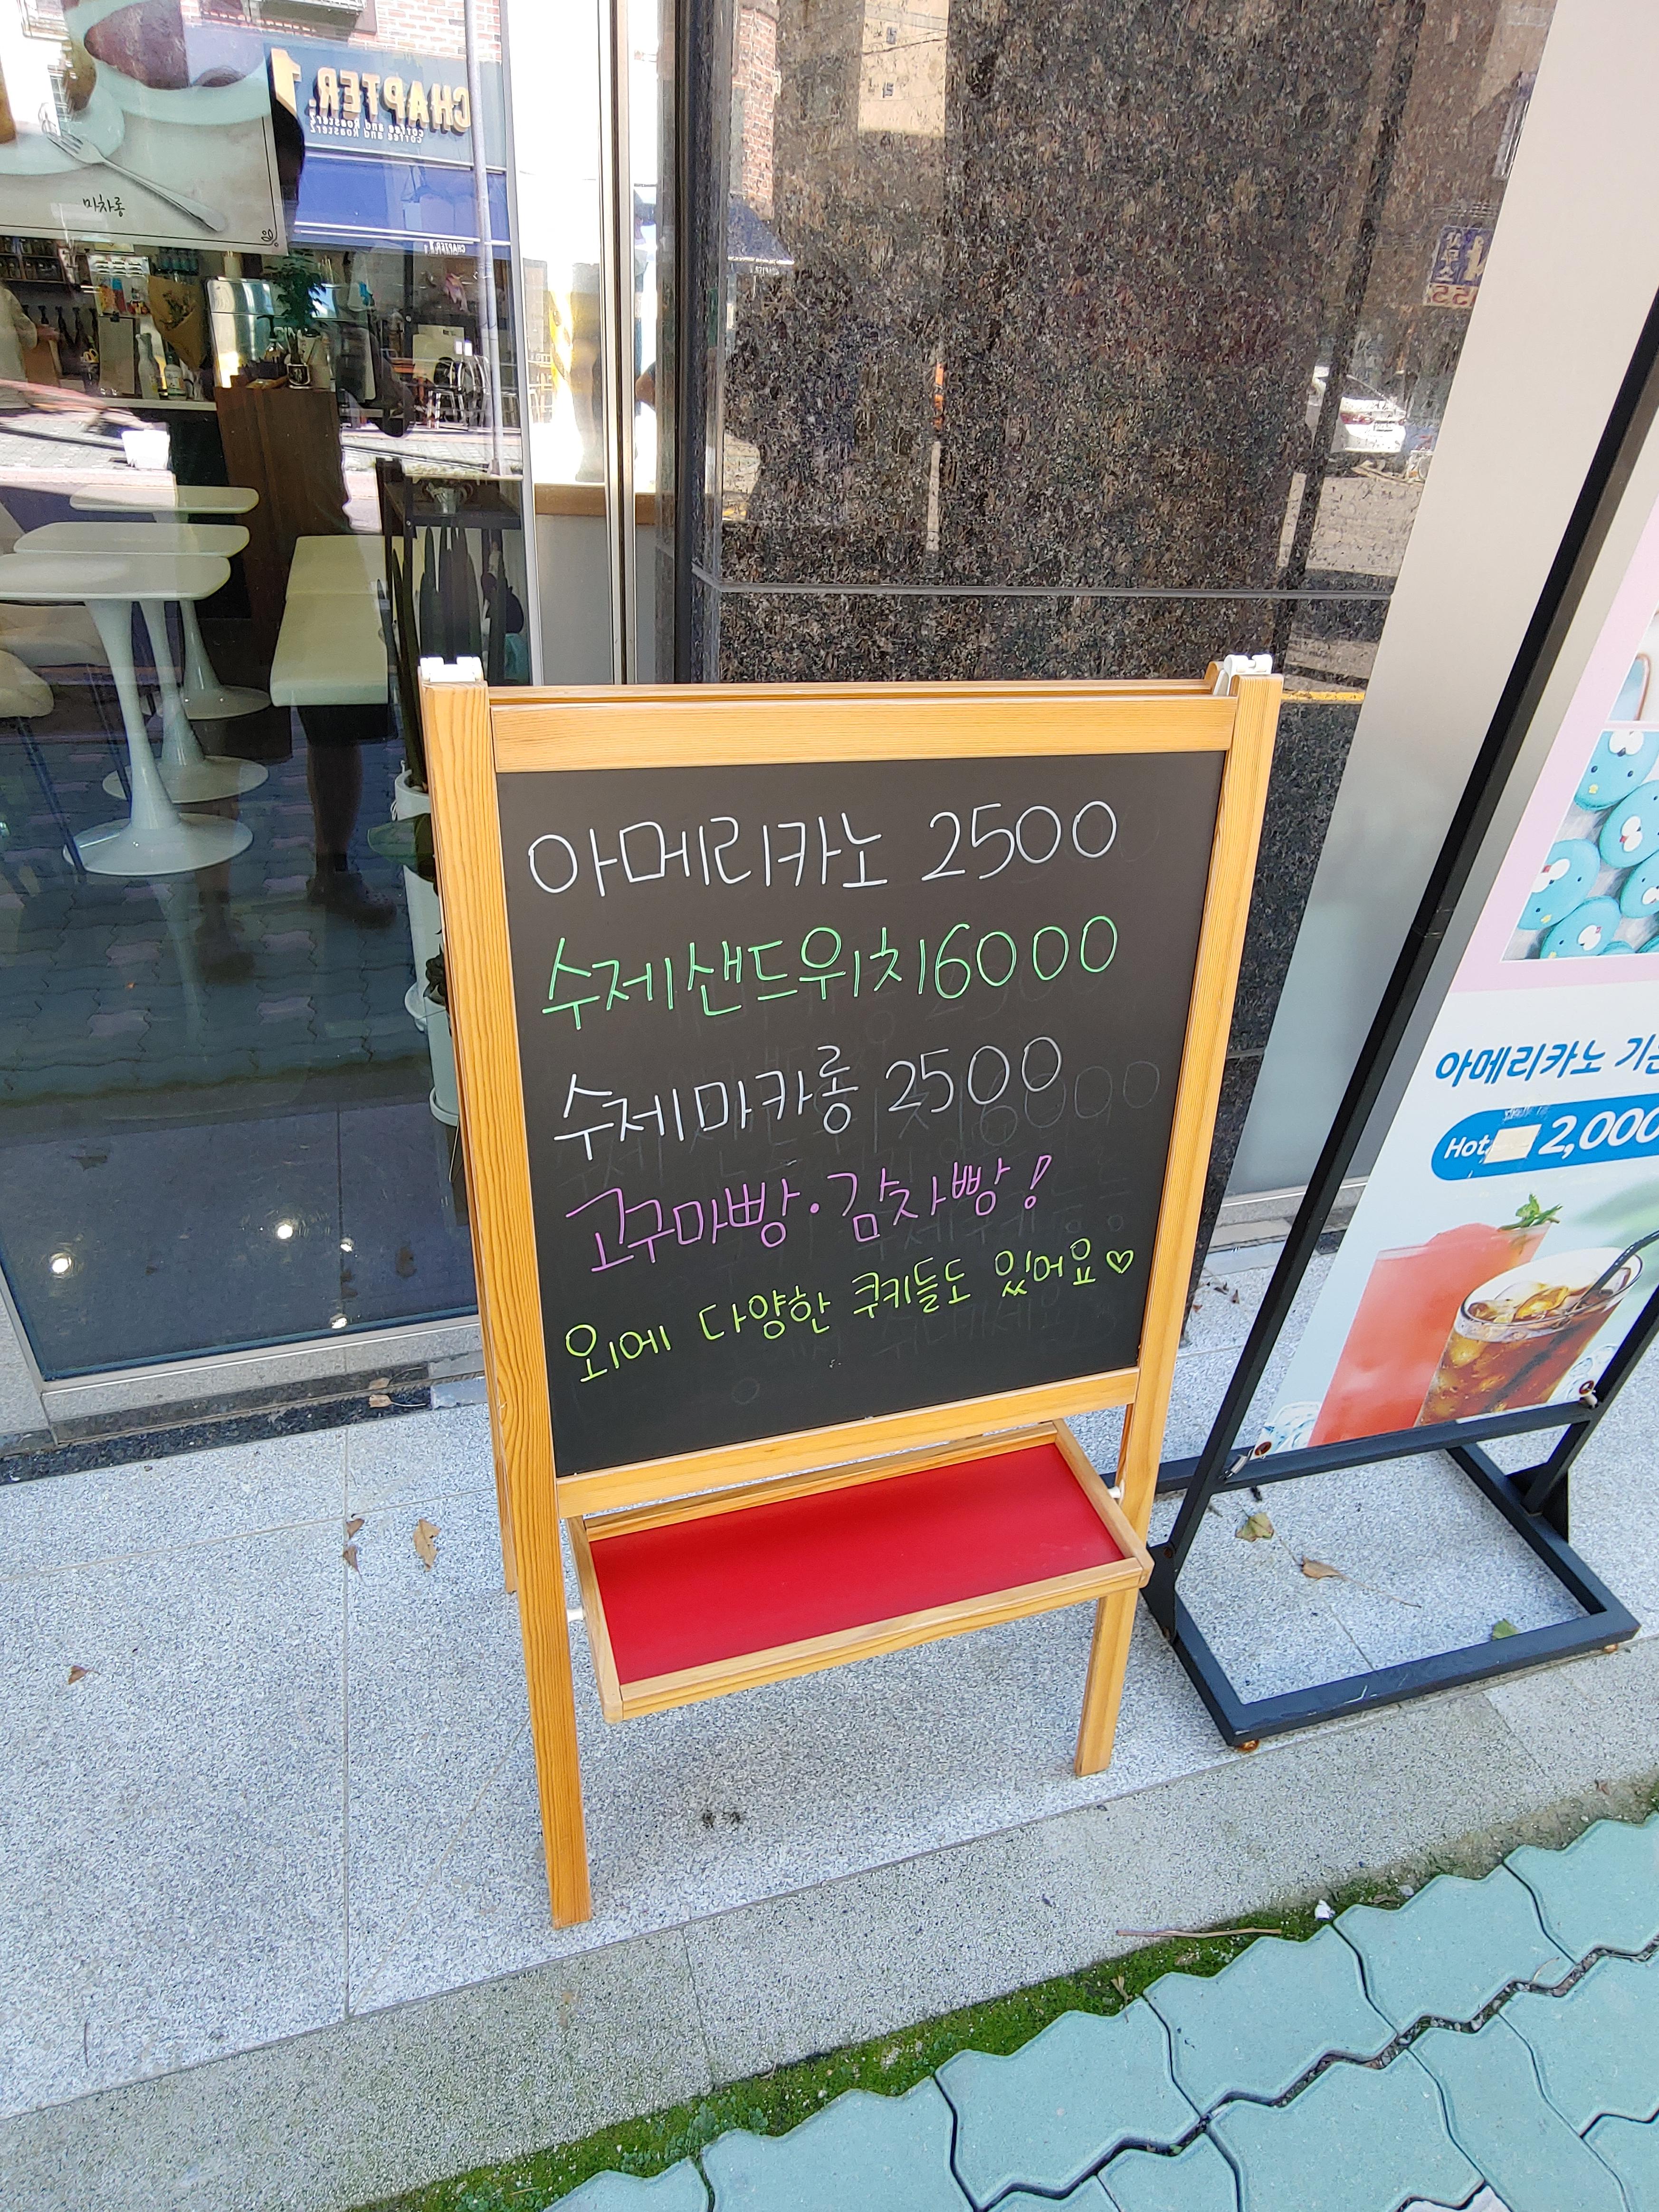 CHAPTER.1
coffee and Roasterz
coffee and Roasterz
미차롱
CHAPTER.1
아메리카노 2500
수제샌드위치6000
수제마카롱 2500
고구마빵·감자빵!
외에 다양한 쿠키들도 있어요♡
아메리카노
Hot 2,000